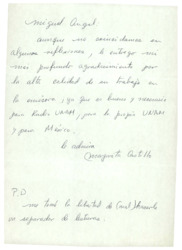 Miguel Angel:
aunque no coincidamos en
algunas reflexiones, le entrego mi
mas profundo agradecimiento por
la alta calidad de su trabajo
en la emisora, ya que es bueno y necesario
para Radio UNAM, para la propia UNAM
y para México.
lo admira
Castillo
P.D
me tomé la libertad de
un separador de